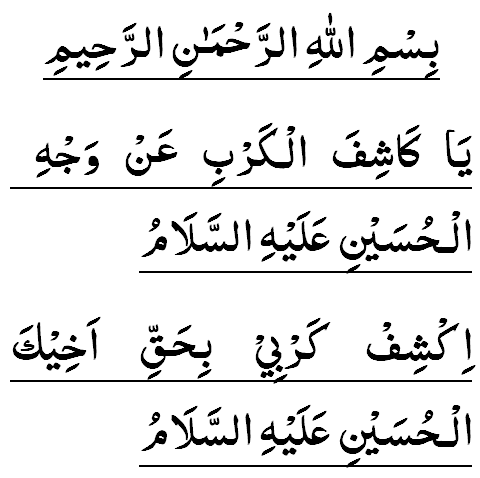 بِسْمِ اللهِ الرَّحْمَـٰنِ الرَّحِيمِ
يَا كَاشِفَ الْكَرْبِ عَنْ وَجْهِ
الْحُسَيْنِ عَلَيْهِ السَّلَامُ
اِكْشِفْ كَرْبِيْ بِحَقِّ اَخِيْكَ
الْحُسَيْنِ عَلَيْهِ السَّلَامُ